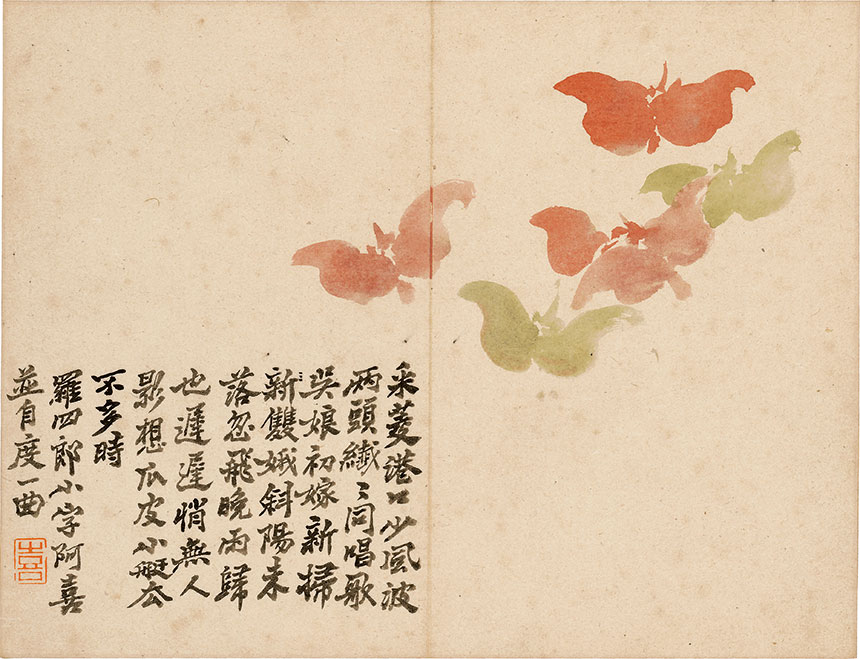 采菱港口少風波
兩頭纖〻同唱歌
吳娘初嫁新掃
新雙娥斜陽未
落忽飛晚雨歸
也遲遲悄無人
影想瓜皮小艇厺
不多時
羅四郎小字阿喜
並自度一曲